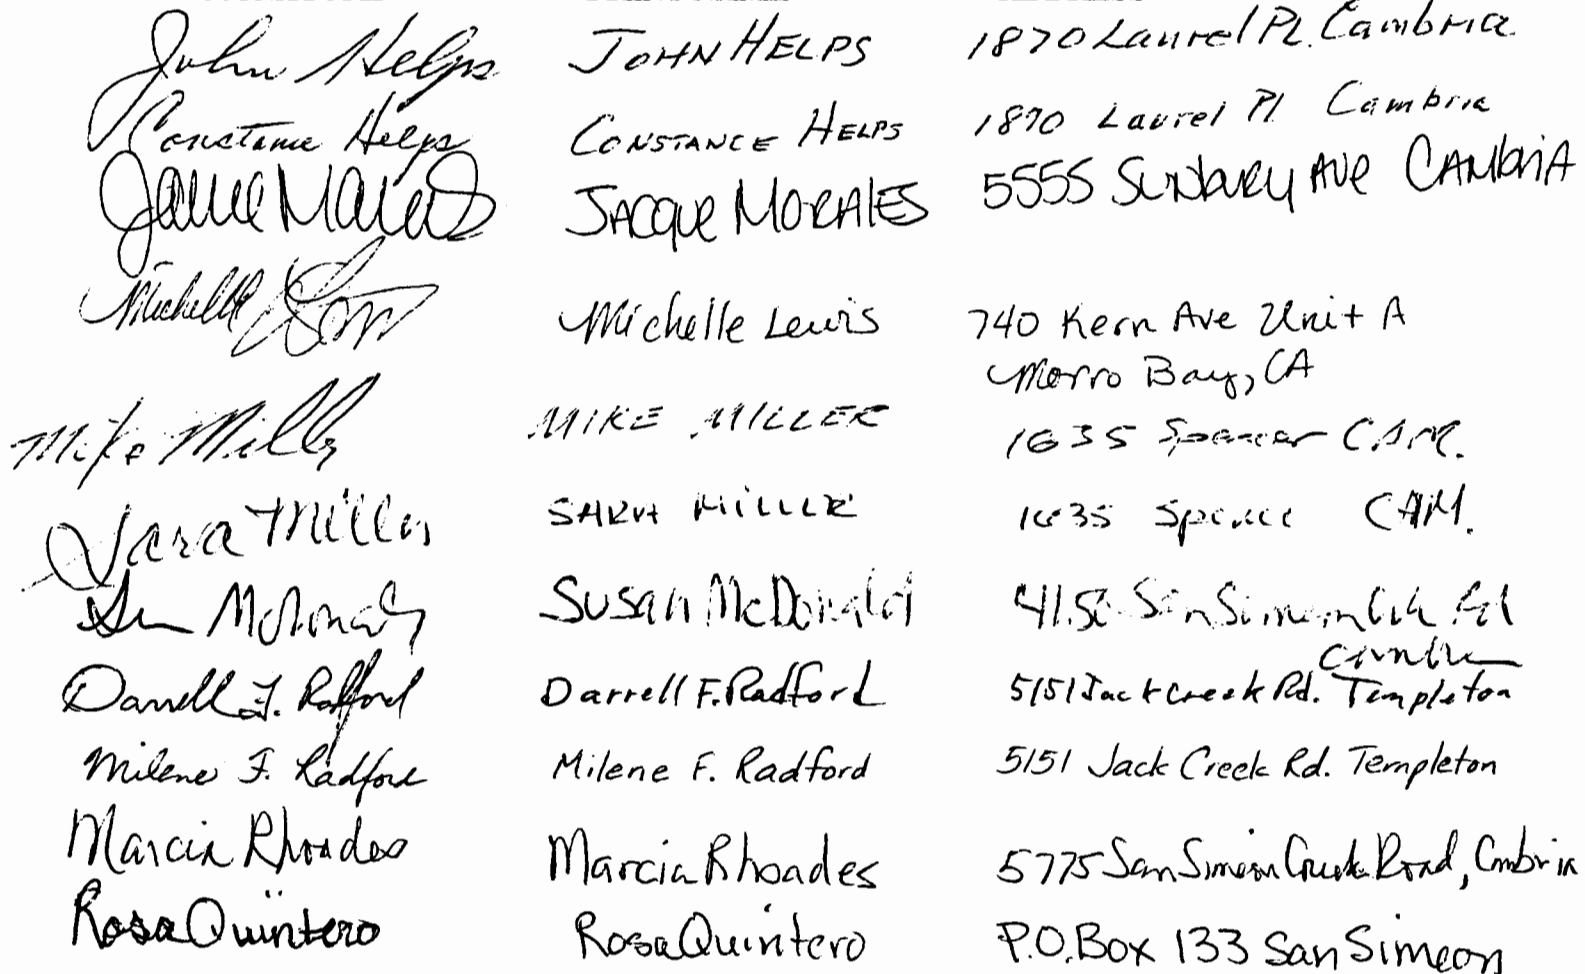 John Helps JOHN HELPS 1870 Laurel Pl. Cambria
Constance Helps CONSTANCE HELPS 1870 Laurel Pl Cambria
JACQUE MORALES 5555 SUNbURY AVE CAMbRIA
Michelle Michelle Lewis 740 Kern Ave Unit A
Morro Bay, CA
Mike Miller MIKE MILLER 1635 Spencer CAM.
Sara Miller SARA MILLER 1635 CAM.
McDonald Susan McDonald San Simeon
Darrell F. Radford Darrell F. Radford 5151 Jack Creek Rd. Templeton
Milene F. Radford Milene F. Radford 5151 Jack Creek Rd. Templeton
Marcia Rhoades Marcia Rhoades 5775 San Simeon Creek Road, Cambria
Rosa Quintero Rosa Quintero P.O. Box 133 San Simeon